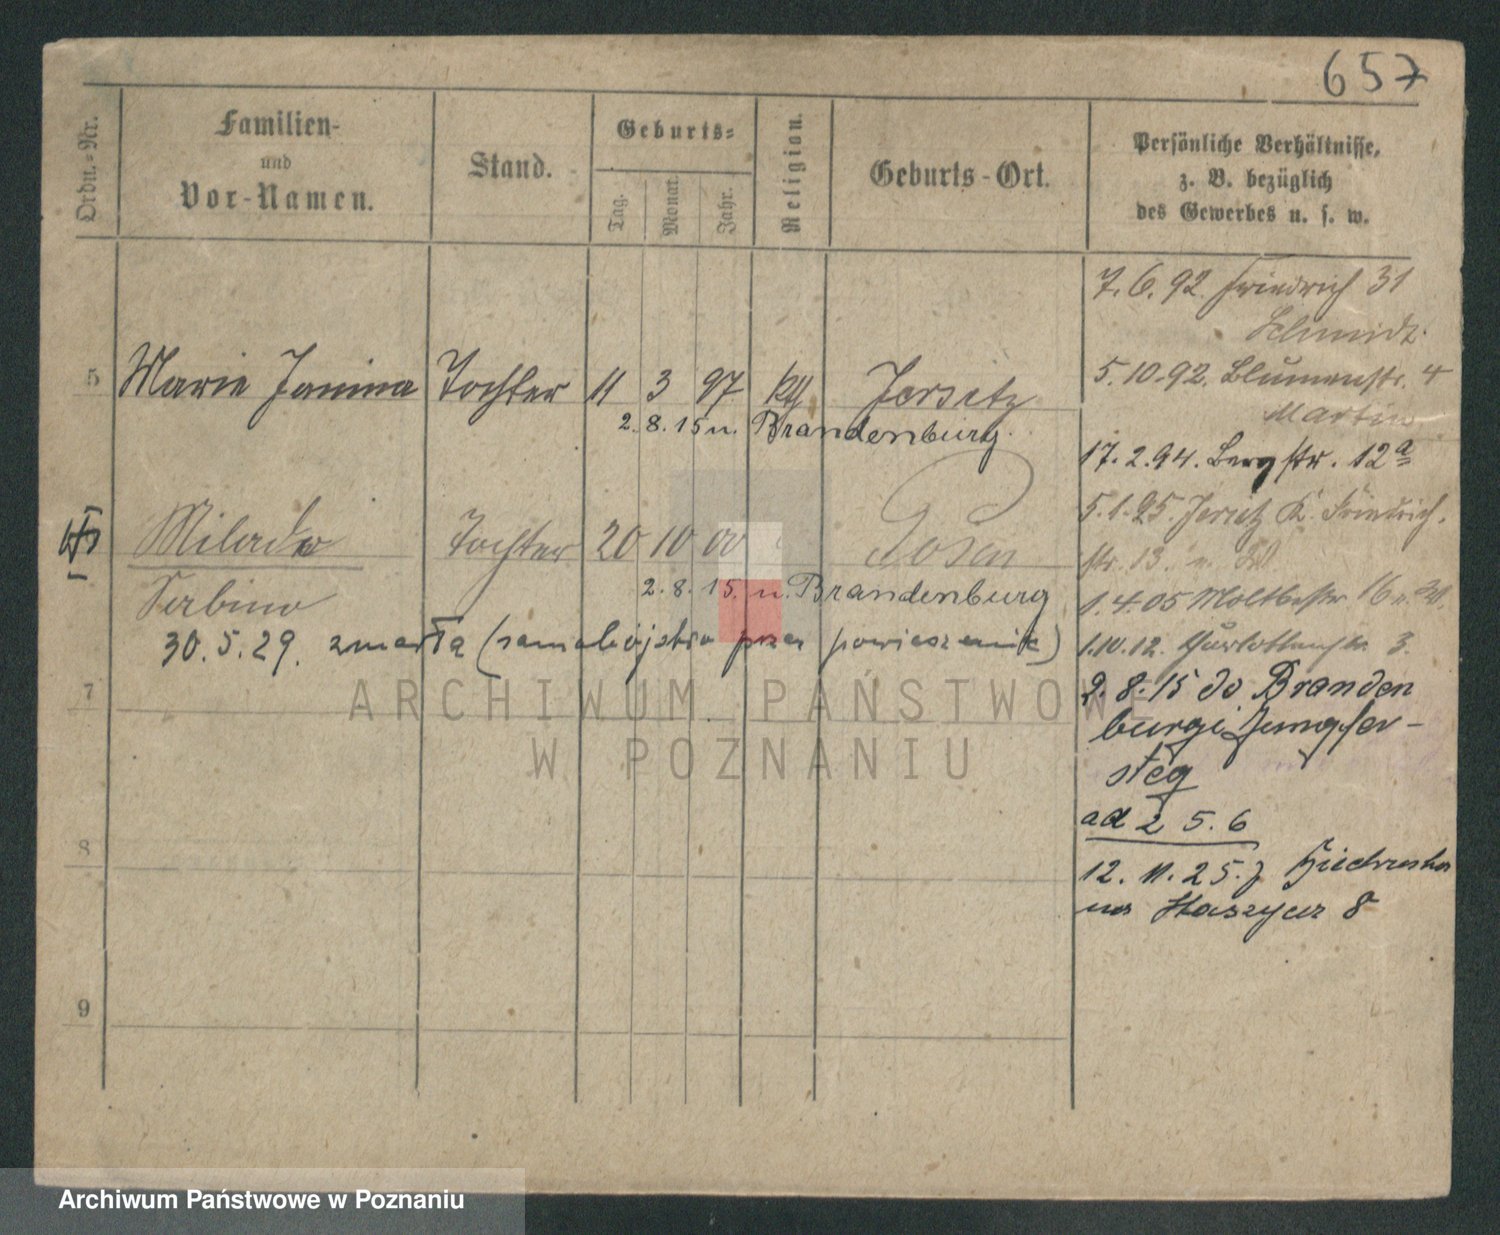 657
Ordn.-Nr.
Familien-
und
Vor-Namen.
Stand.
Geburts-
Tag.
Monat.
Jahr.
Religion.
Geburts-Ort.
Persönliche Verhältnisse,
z. B. bezüglich
des Gewerbes u. s. w.
5 Marie Janina Tochter 11 3 97 kth Jersitz
2.8.15 n. Brandenburg.
Milada Tochter 20 10 00 Posen
2.8.15. n. Brandenburg
Serbino
30.5.29. zmarła (samobójstwo przez powieszenie)
7
8
9
7.6.92. Friedrich 31
Schmidt
5.10.92. Blumenstr. 4
Martin
17.2.94. Bergstr. 12a
5.1.95. Jersitz K. Friedrich.
str. 13.
1.4.05 Moltkestr 16
1.10.12. 3.
2.8.15 do Branden
burgi Jungfer-
steg
ad 2 5.6
12.11.25. z
na 8
ARCHIWUM PAŃSTWOW
W POZNANIU
Archiwum Państwowe w Poznaniu